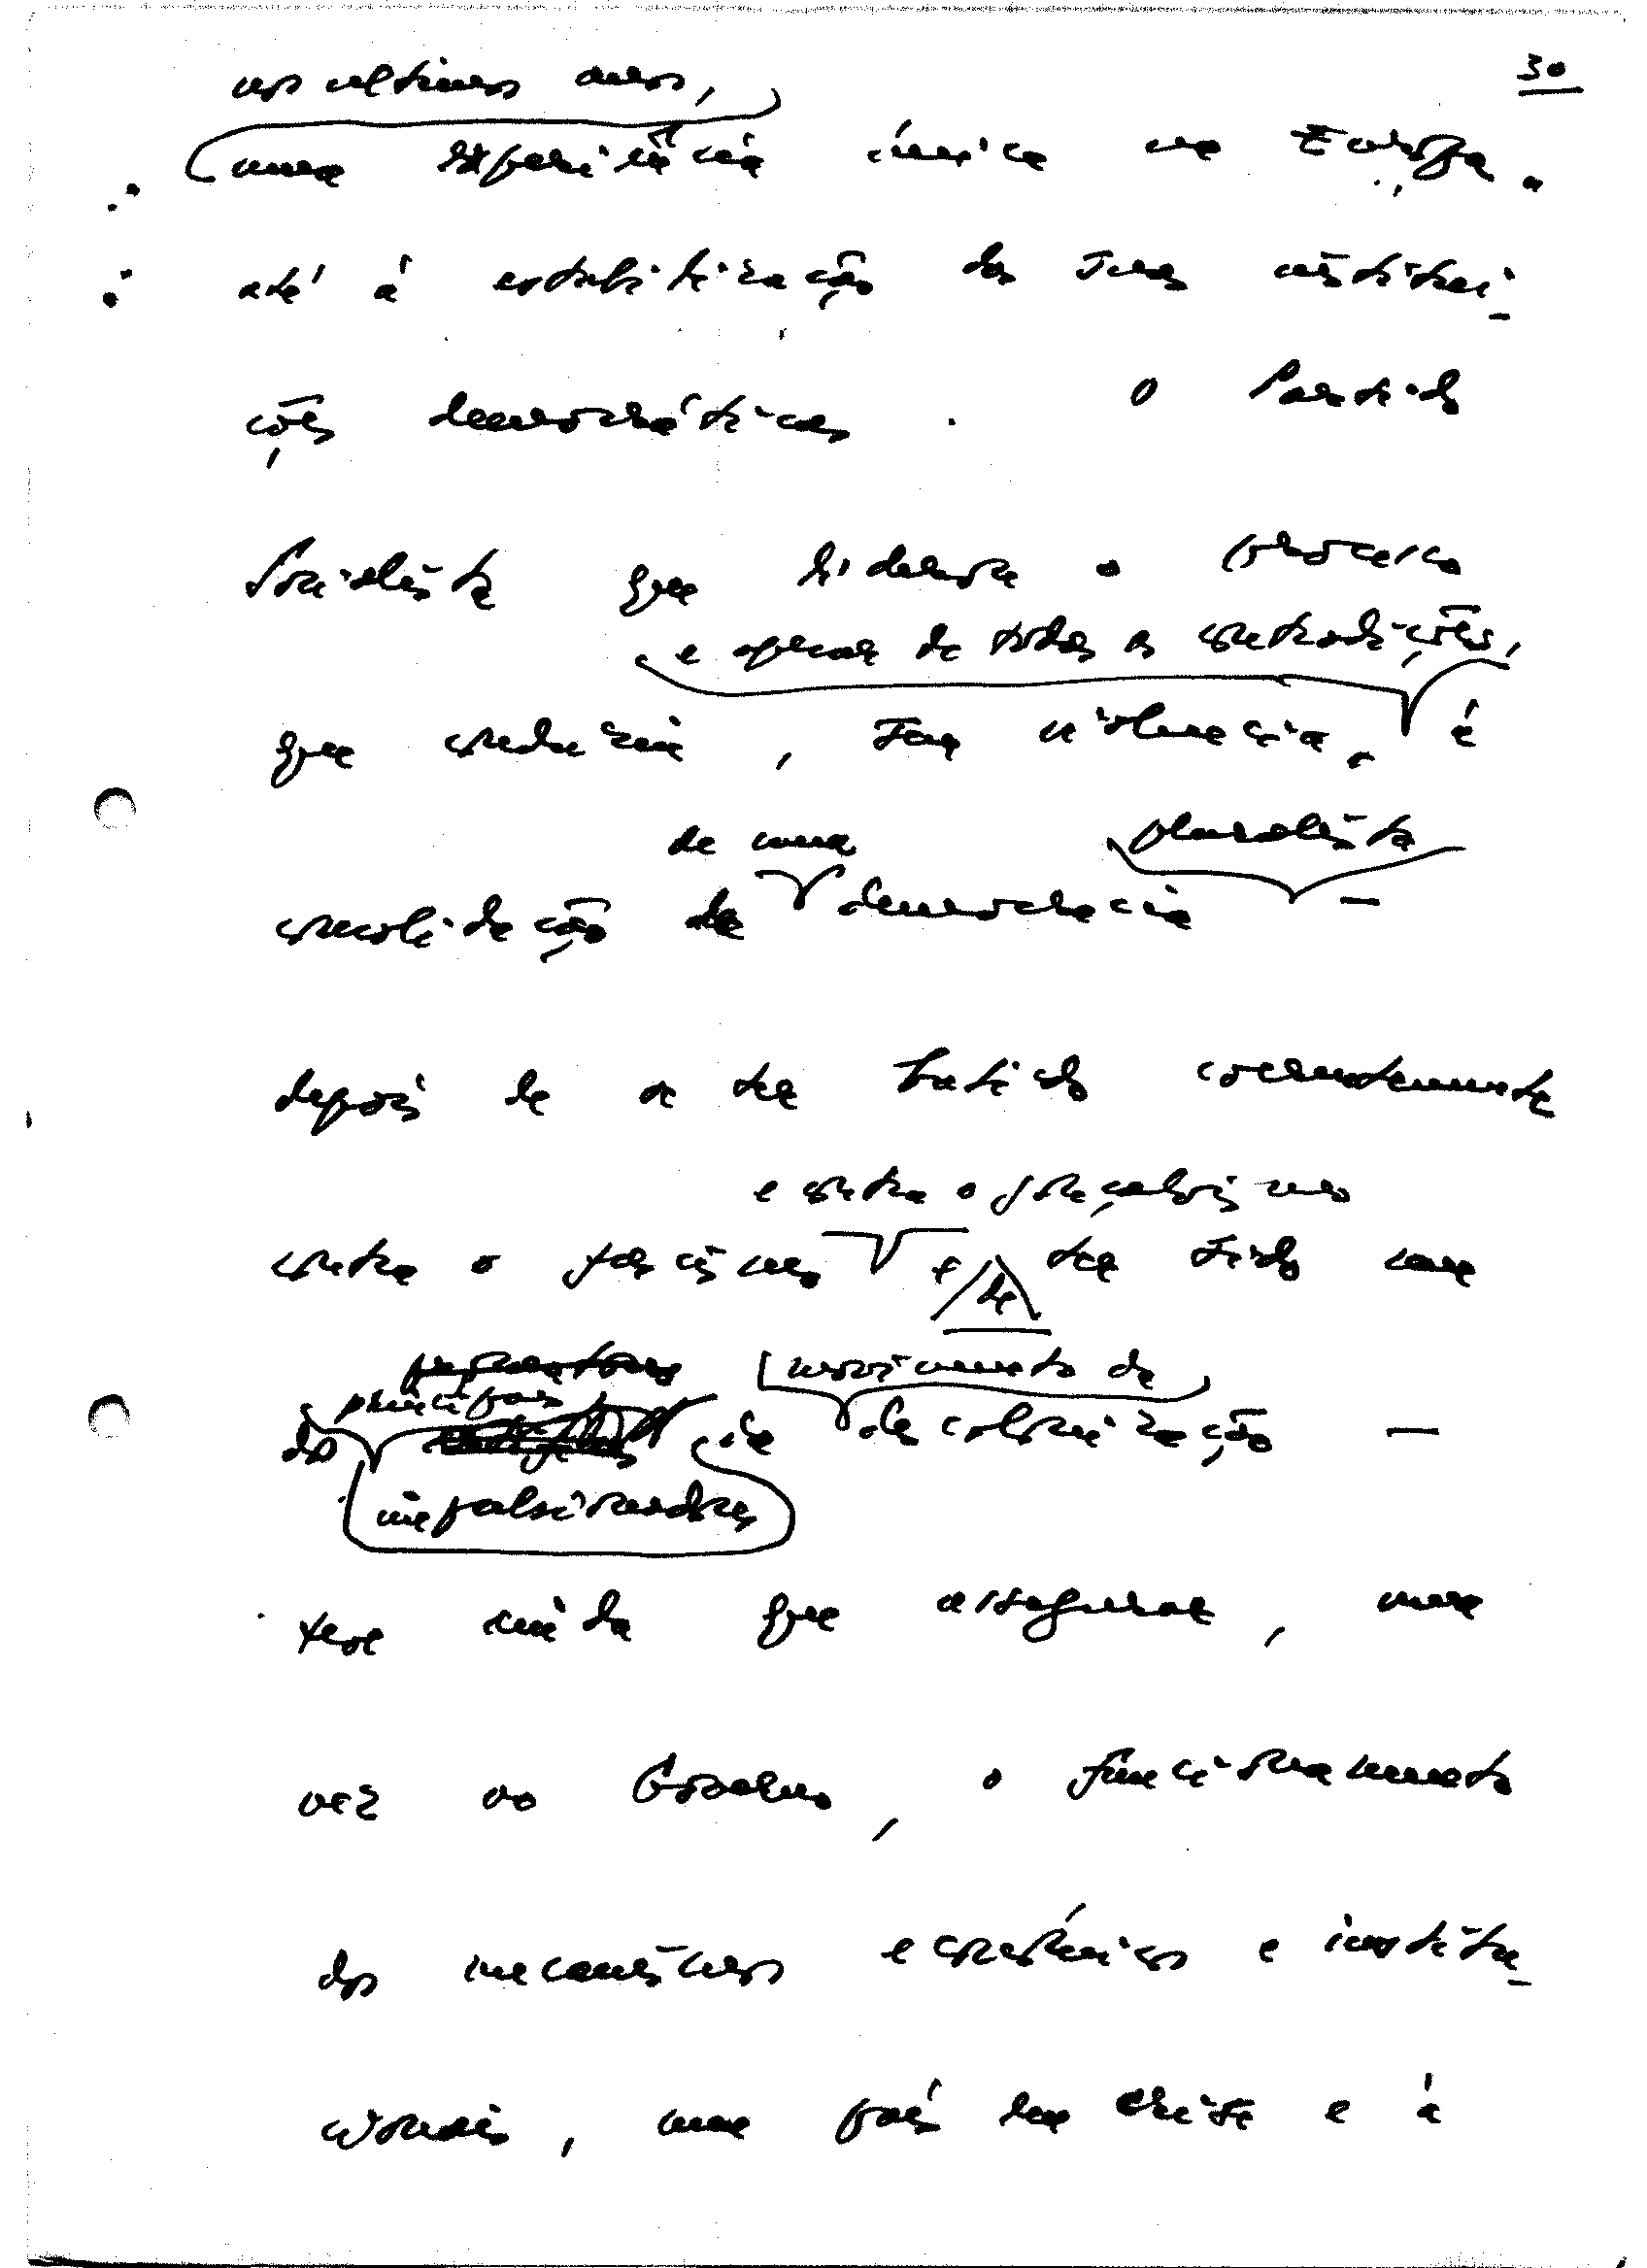 30
nos ultimos anos,
uma experiência única na Europa.
até à estabilização das suas institui-
ções democráticas. O Partido
Socialista que liderava o processo
e apesar de todas as contradições,
que conduzia, sem violencia, é
de uma pluralista
consolidação da democracia —
depois de se ter batido coerentemente
e contra o gonçalvismo
contra o fascismo e de ter sido um
principais movimento de
dos de descolonização —
impulsionadores
teve ainda que assegurar, uma
vez no Governo, o funcionamento
dos mecanismos económicos e institu-
cionais, num país em crise e à